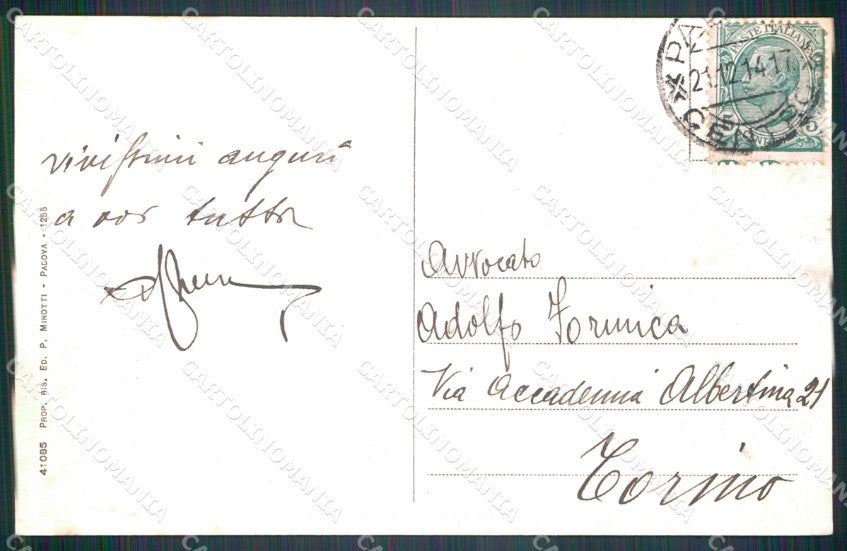 vivissimi auguri
a voi tutti
Avvocato
Adolfo Formica
Via Accademia Albertina 21
Torino
POSTE ITALIANE
21.12.14.17
41085 PROP. RIS. ED. P. MINOTTI - PADOVA - 1255
CARTOLINOMANIA